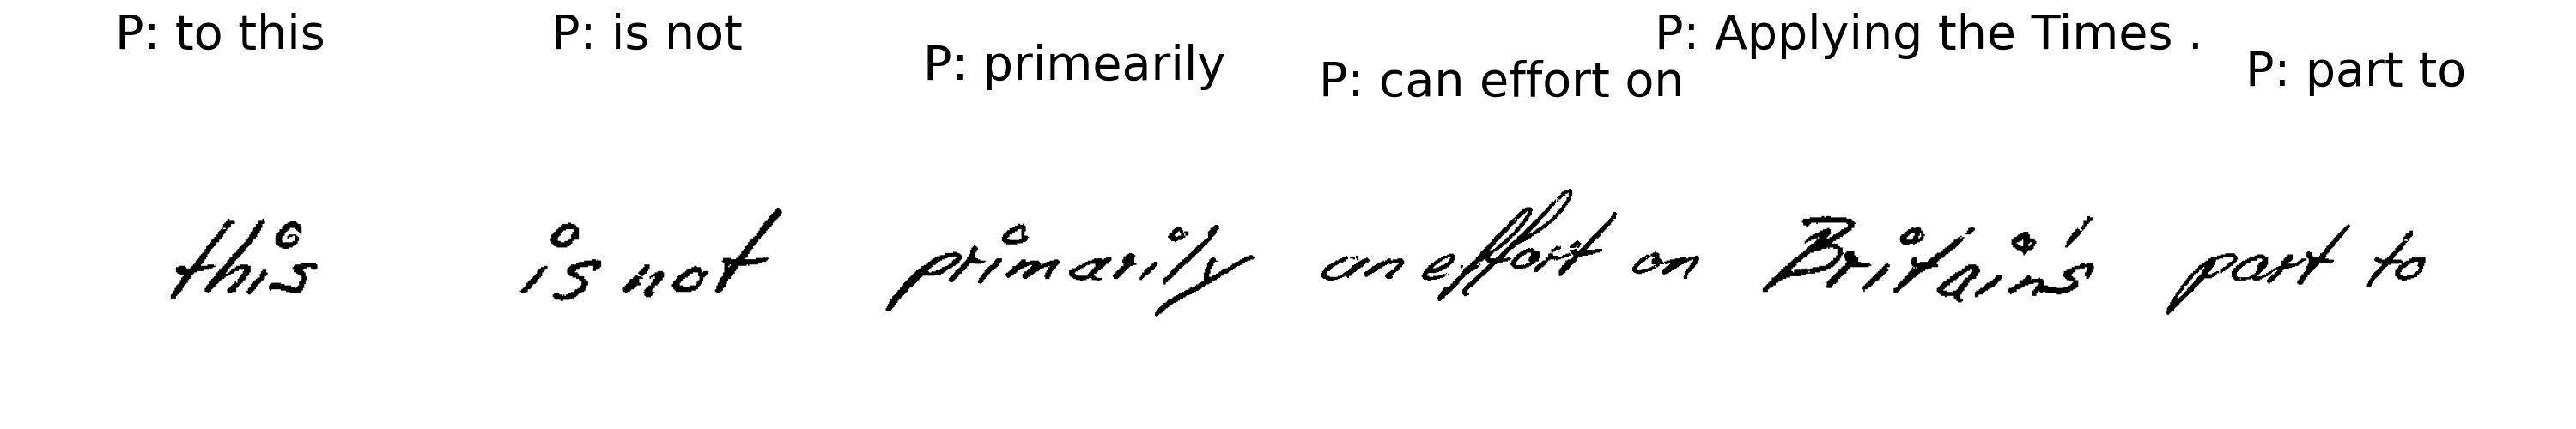 P: to this P: is not P: primearily P: can effort on P: Applying the Times . P: part to
this is not primarily an effort on Britain's part to